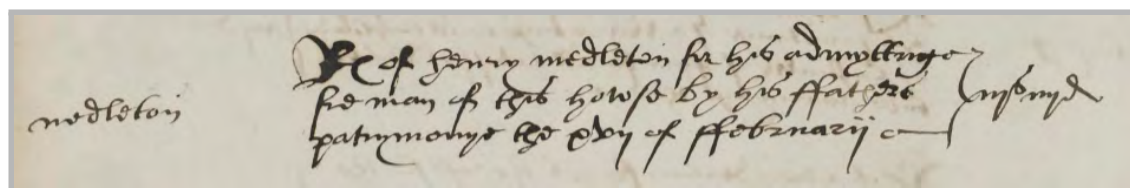 medleton
Rc of henry medleton for his admyttinge
fre man of this howse by his ffathers
patrymonye the xvij of ffebruarij
iijs iiijd